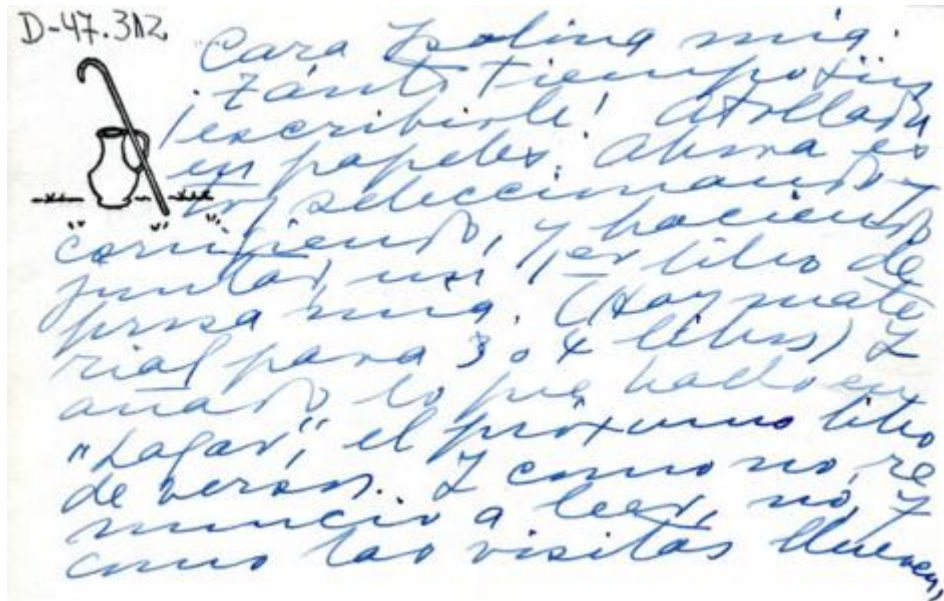 D-47.312.
Cara Isolina mía:
¡Tánto tiempo sin
escribirle! Atollada
en papeles. Ahora es
toy seleccionando y
corrigiendo, y haciendo
juntar, un 1er libro de
prosa mía. (Hay mate
rial para 3 o 4 libros) Y
añado lo que hallo en
"Lagar", el próximo libro
de versos. Y como no re
nuncio a leer, no, y
como las visitas llueven,